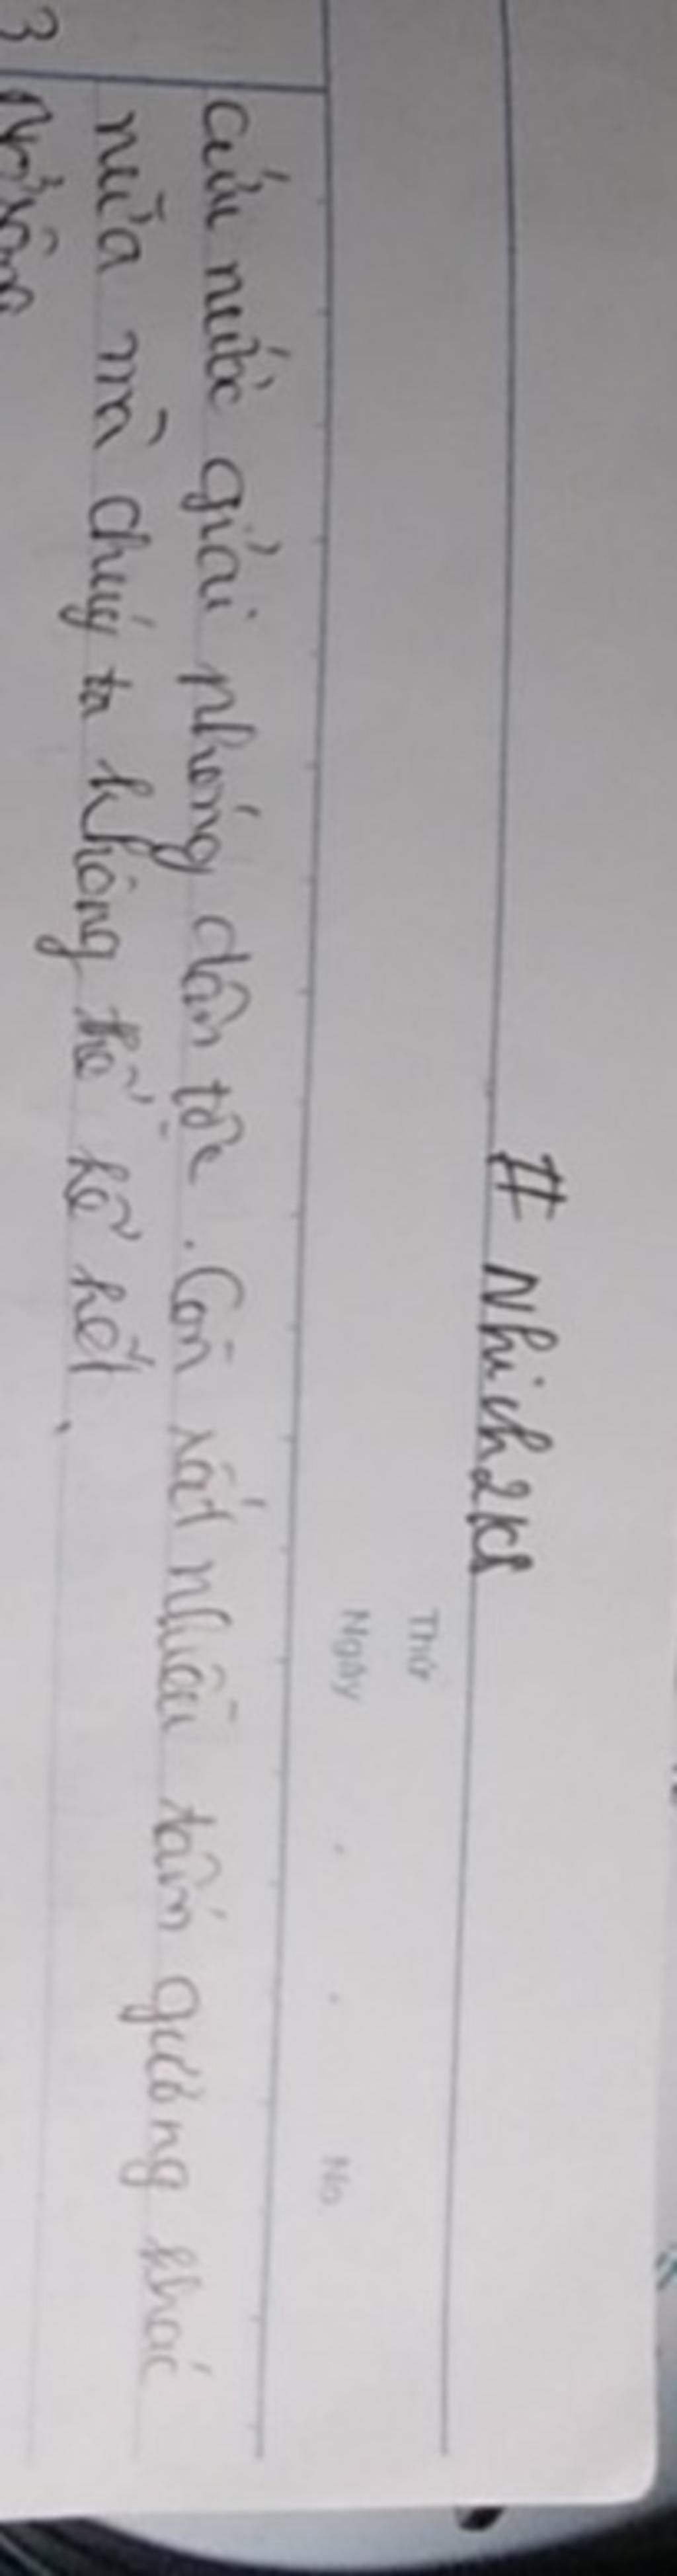 # Nhich2k8
Thứ
Ngày . . No
cứu nước giải phóng dân tộc. Còn rất nhiều tấm gương khác
nữa mà chúng ta không thể kể hết.
3